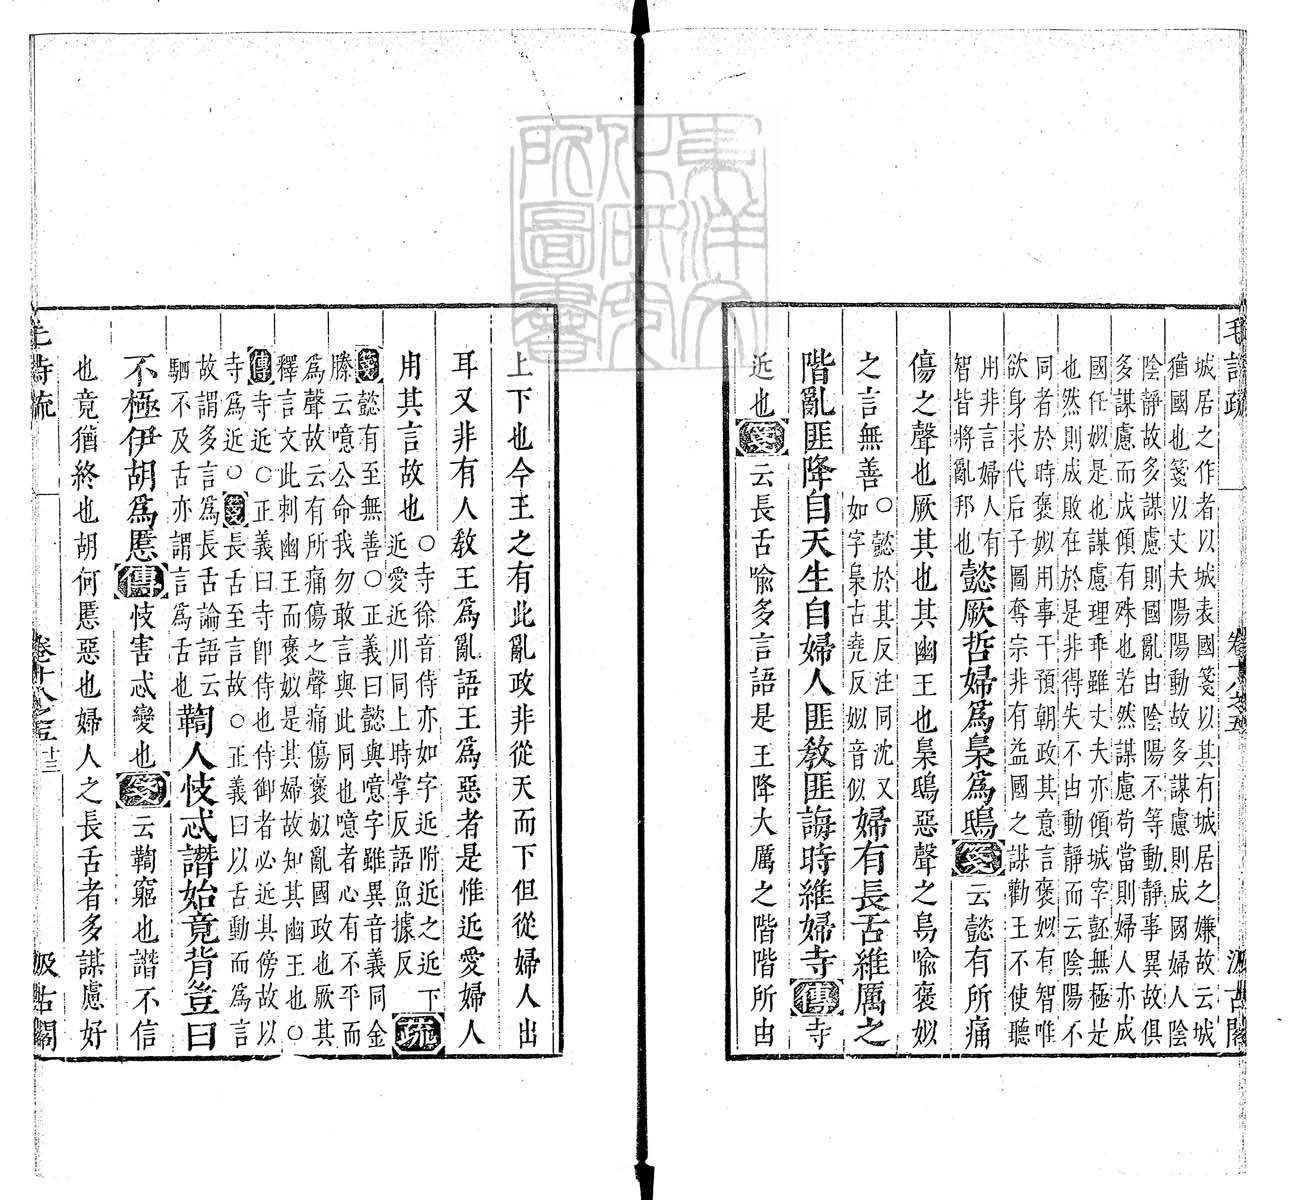 毛詩疏 卷十八之五 汲古閣
城居之作者以城表國箋以其有城居之嫌故云城
猶國也箋以丈夫陽陽動故多謀慮則成國婦人陰
陰靜故多謀慮則國亂由陰陽不等動靜事異故俱
多謀慮而成傾有殊也若然謀慮苟當則婦人亦成
國任姒是也謀慮理乖雖丈夫亦傾城宰嚭無極是
也然則成敗在於是非得失不由動靜而云陰陽不
同者於時褒姒用事干預朝政其意言褒姒有智唯
欲身求代后子圖奪宗非有益國之謀勸王不使聽
用非言婦人有
智皆將亂邦也
懿厥哲婦爲梟爲鴟箋云懿有所痛
傷之聲也厥其也其幽王也梟鴟惡聲之鳥喻褒姒
之言無善
○懿於其反注同沈又
如字梟古堯反姒音似
婦有長舌維厲之
階亂匪降自天生自婦人匪敎匪誨時維婦寺傳寺
近也箋云長舌喻多言語是王降大厲之階階所由
東洋文化研究所圖書
上下也今王之有此亂政非從天而下但從婦人出
耳又非有人敎王爲亂語王爲惡者是惟近愛婦人
用其言故也
○寺徐音侍亦如字近附近之近下
近愛近川同上時掌反語魚據反
疏
箋懿有至無善○正義曰懿與噫字雖異音義同金
滕云噫公命我勿敢言與此同也噫者心有不平而
爲聲故云有所痛傷之聲痛傷褒姒亂國政也厥其
釋言文此刺幽王而褒姒是其婦故知其幽王也○
傳寺近○正義曰寺卽侍也侍御者必近其傍故以
寺爲近○箋長舌至言故○正義曰以舌動而爲言
故謂多言爲長舌論語云
駟不及舌亦謂言爲舌也
鞫人忮忒譖始竟背豈曰
不極伊胡爲慝傳忮害忒變也箋云鞫窮也譖不信
也竟猶終也胡何慝惡也婦人之長舌者多謀慮好
毛詩疏 卷十八之五 十三 汲古閣